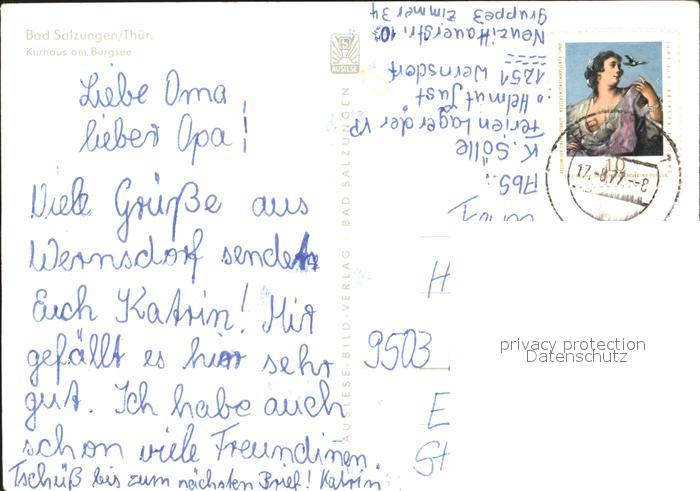 Bad Salzungen/Thür.
Kurhaus am Burgsee
Liebe Oma,
lieber Opa!
Viele Grüße aus
Wernsdorf sendet
Euch Katrin! Mir
gefällt es hier sehr
gut. Ich habe auch
schon viele Freundinnen.
Tschüß bis zum nächsten Brief! Katrin
AUSLESE
AUSLESE-BILD-VERLAG · BAD SALZUNGEN
Abs.:
K. Sölle
Ferienlager der VP
"Helmut Just"
1251 Wernsdorf
Neuzittauerstr. 10
Gruppe 3 Zimmer 34
10
17.-8.77.-8
H
9503
E
St
privacy protection
Datenschutz